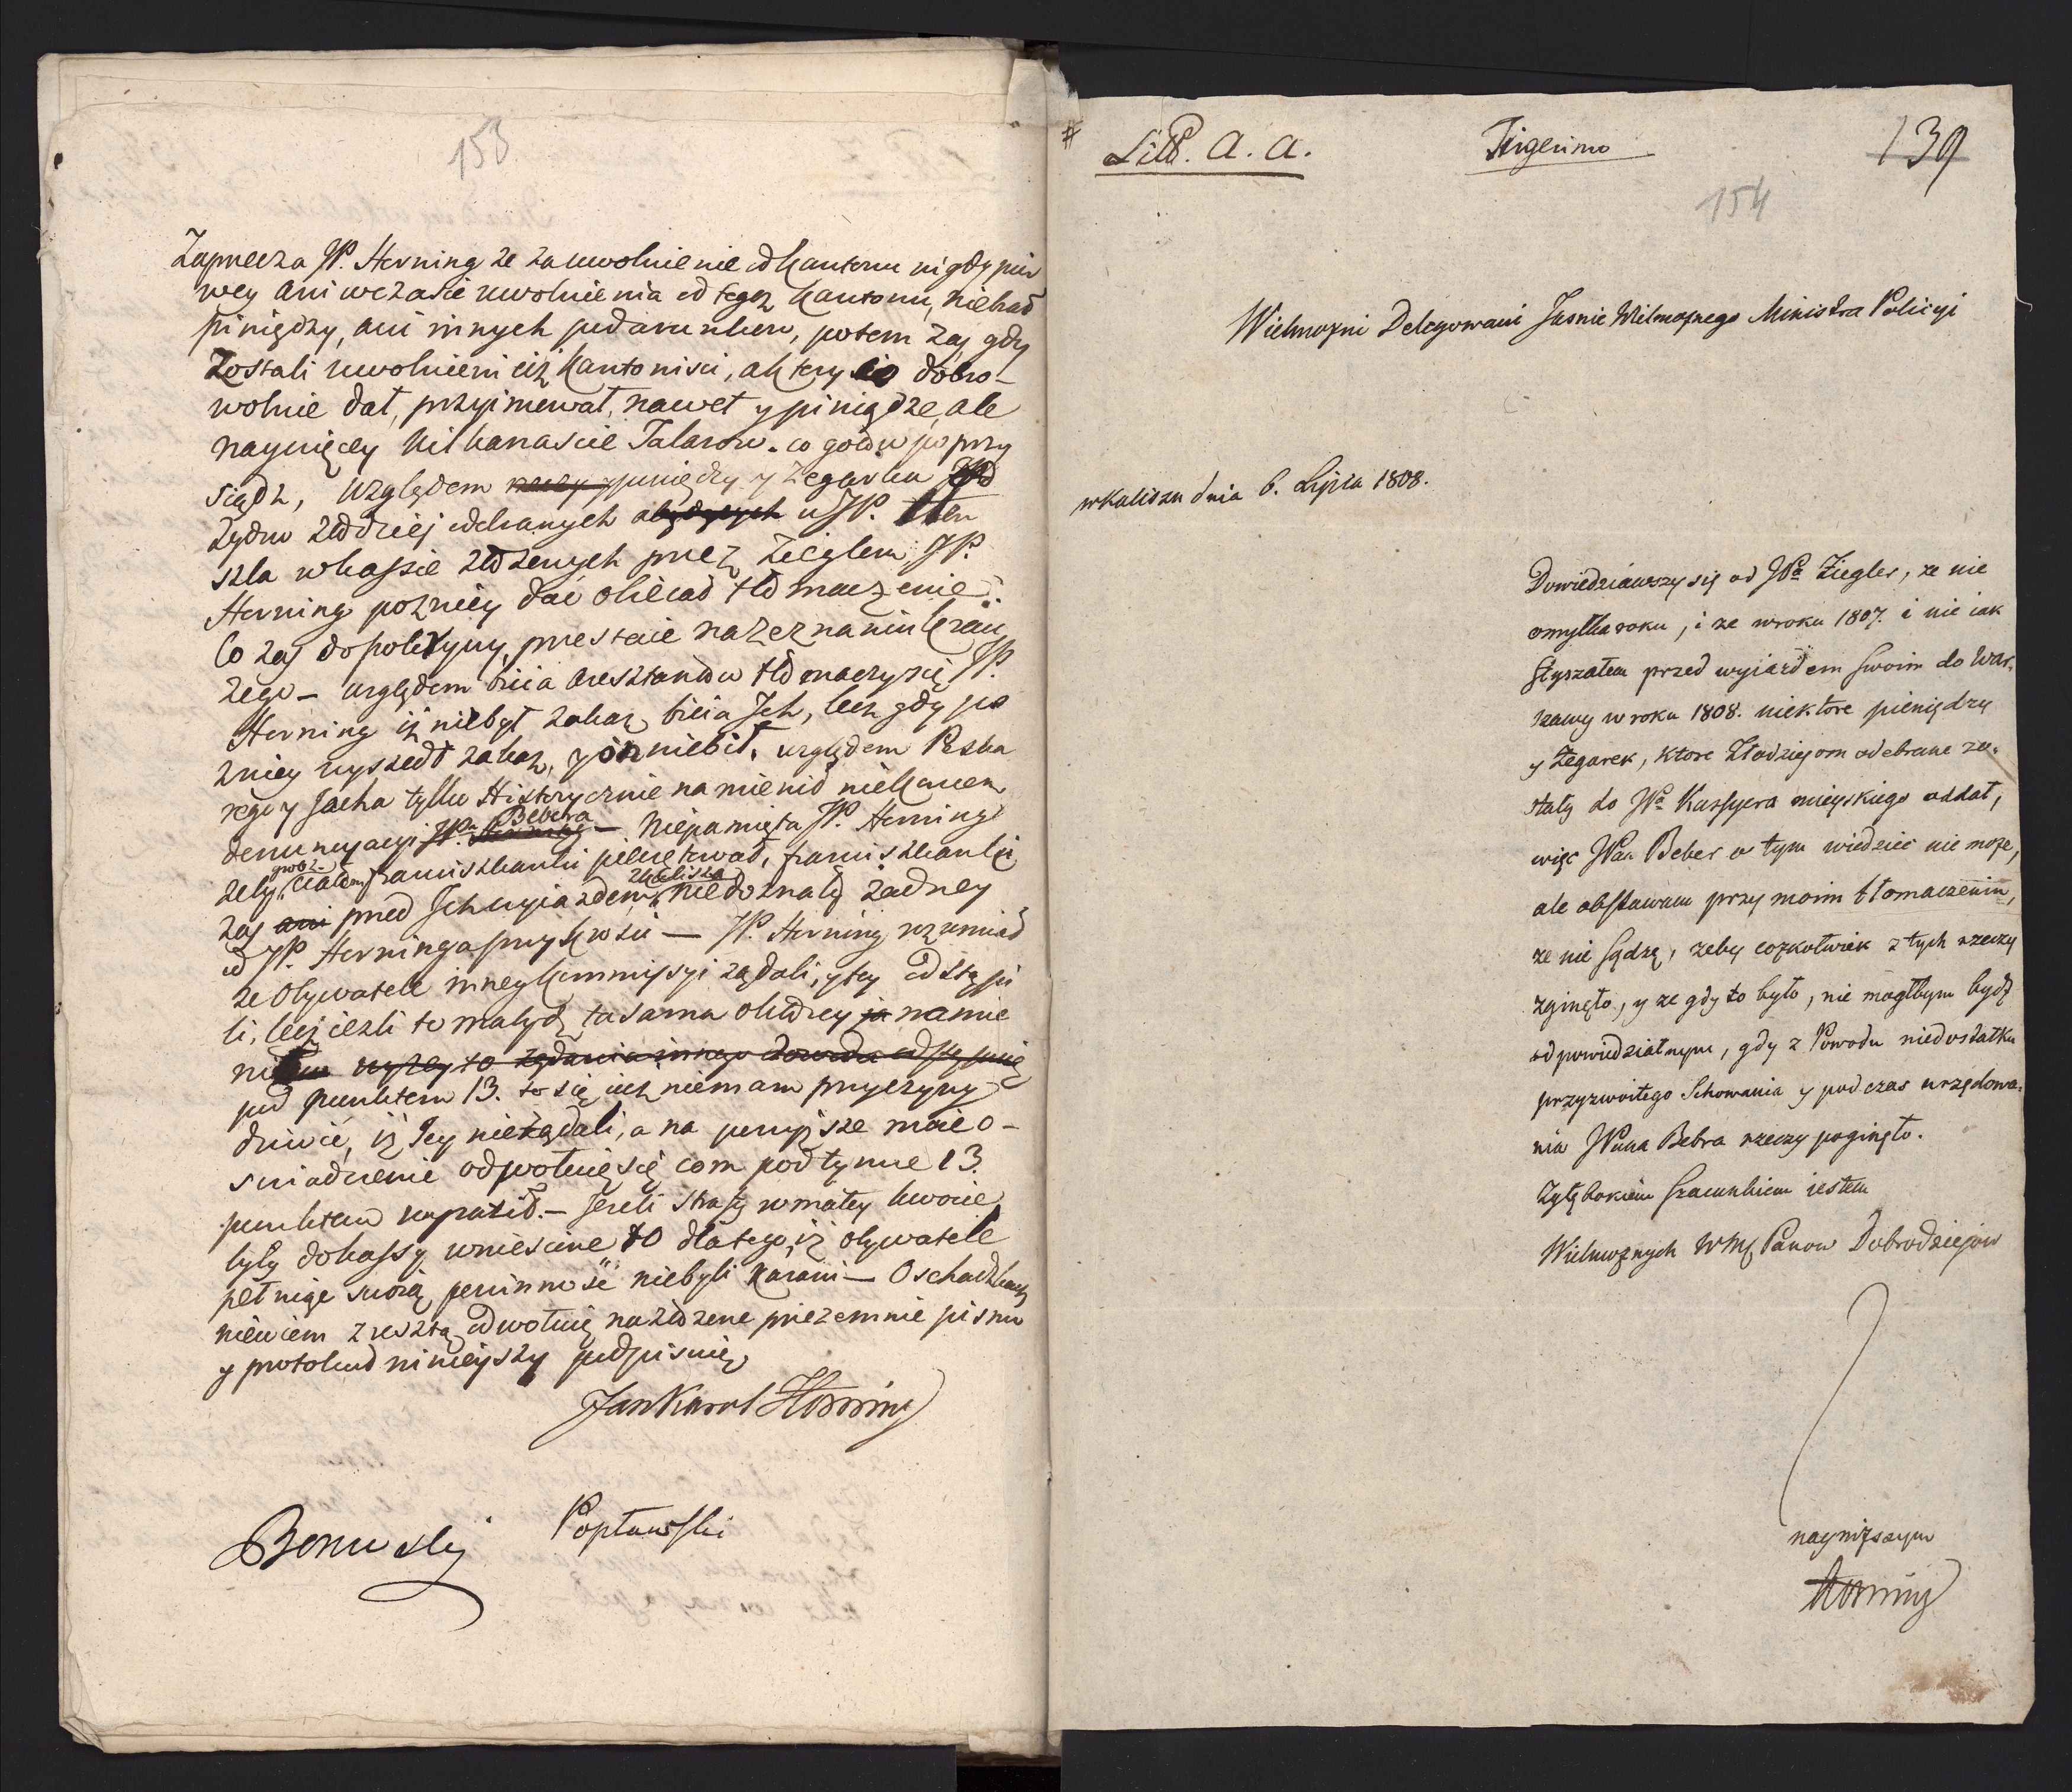 153
Zaprecza JP. Herning ze za uwolnienie od kantonu nigdy pier
wey ani w czasie uwolnienia od tegoz kantonu, niebrał
piniędzy, ani innych podarunkow, potem zaś gdy
Zostali uwolnieni ciż kantonisci, a ktory co dobro-
wolnie dał, przyimował, nawet y piniądze, ale
naywięcey kilkanascie Talarow. co gotow jes przy
siądz, Względem piniędzy y Zegarka od
Żydow złodziej odebranych u JP.
szla w kassie złożonych przez Zieglera JP.
Herning pozniey dać obiecał tłomaczenie.
Co zaś do policyiny, przestaie na zeznaniu Krau
zego – względem bicia aresztantow tłomaczy się JP.
Herning iż niebył zakaz bicia Jch, lecz gdy po
zniey wyszedł zakaz, y on niebił. względem Peska
rego y Jacha tylko Historycznie namienił niekauen
denuncyacyi JPa Bebera – Niepamięta JP. Herning
zeby ciałem franciszkanki pielęgnował, franciszkanki
zaś przed Jch wyiazdem z Kalisza niedoznały żadney
od JP. Herninga przykrosci – JP. Herning rozumiał
ze Obywatele inney kommissyi żądali, y tey odstąpi
li, lecz iezli to ma bydź ta sama o ktorey namie
niłem
pod punktem 13. to się iuż niemam przyczyny
dziwić, iż Jey nieżądali, a na powyższe moie o-
swiadczenie odwołuię się com pod tymże 13.
punktem wyraził. – Jezeli straży w małey kwocie
były do kassy wniesione to dlatego, iż obywatele
pełniąc swoią powinność niebyli karani – O schadzkach
niewiem z resztą odwołuię na złożone przezemnie pismo
y protokuł ninieyszy podpisuię
Jan Karol Horning
Popławski

# Litt. a. a.
139
154
Wielmożni Delegowani Jasnie Wielmożnego Ministra Policyi
w Kaliszu dnia 6. Lipca 1808.
Dowiedziawszy się od JPa Ziegler, ze nie
omyłka roku, i ze w roku 1807. i nie iak
słyszałem przed wyiazdem swoim do War-
szawy w roku 1808. niektore pieniędzy
y Zegarek, ktore Złodziejom odebrane zo-
stały do JPa Kassyera mieyskiego oddał,
więc JPan Beber o tym wiedziec nie może,
ale obstawam przy moim tłomaczeniu,
ze nie sądzę, zeby cożkolwiek z tych rzeczy
zginęło, y ze gdy to było, nie mogłbym bydź
odpowiedzialnym, gdy z Powodu niedostatku
przyzwoitego Schowania y podczas urzędowa-
nia JPana Bebra rzeczy poginęło.
Z głębokiem szacunkiem iestem
Wielmożnych WMę Panow Dobrodziejow
nayniższym
Horning